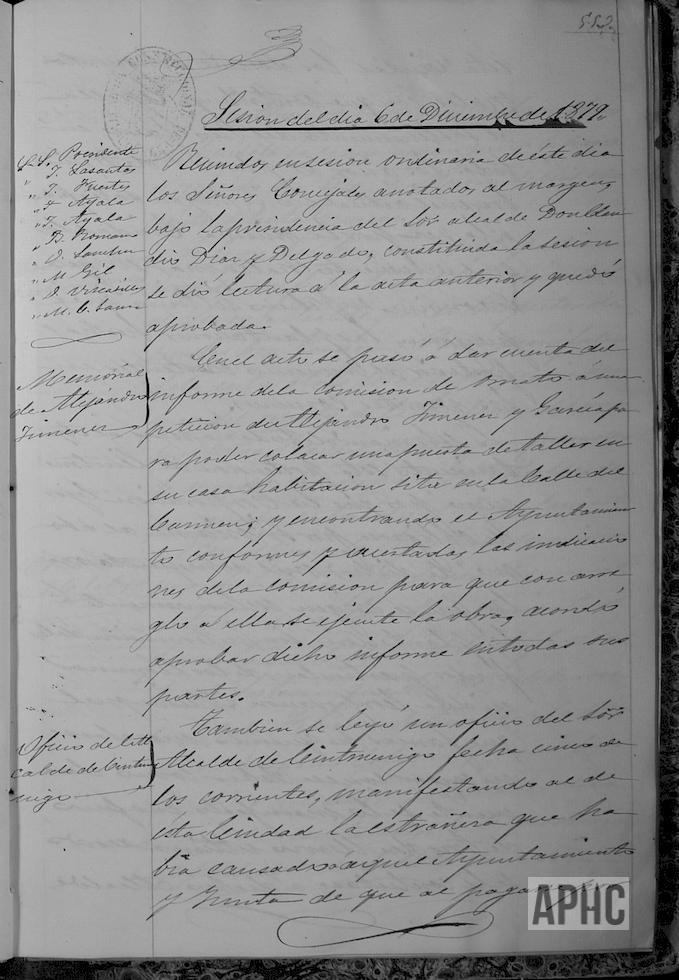 552.
Sesion del dia 6 de Diciembre de 1879.
S.S. Presidente
" T. Lasantas
" T. Fuertes
" F. Ayala
" T. Ayala
" B. Romano
" D. Sanchez
" M. Gil
" M. C. Sanz
Reunidos en sesion ordinaria de éste dia
los Señores Concejales anotados al margen,
bajo la presidencia del Sor. alcalde Don
Diaz y Delgado, constituida la sesion
se dió lectura á la acta anterior y quedó
aprobada.
Memorial
de Alejandro
Jimenez
En el acto se pasó á dar cuenta del
informe de la comision de ornato á una
peticion de Alejandro Jimenez y Garcia pa
ra poder colocar una puerta de taller en
su casa habitacion sita en la Calle del
Carmen; y encontrando el Ayuntamien
to conformes y acertadas las indicacio
nes de la comision para que con arre
glo á ellas se ejecute la obra, acordó
aprobar dicho informe en todas sus
partes.
Oficio del Al
calde de Cintru
nigo
Tambien se leyó un oficio del Sor.
Alcalde de Cintruenigo fecha cinco de
los corrientes, manifestando al de
ésta Ciudad la estrañeza que ha
bia causado á aquel Ayuntamiento
y Junta de que al pagar
APHC